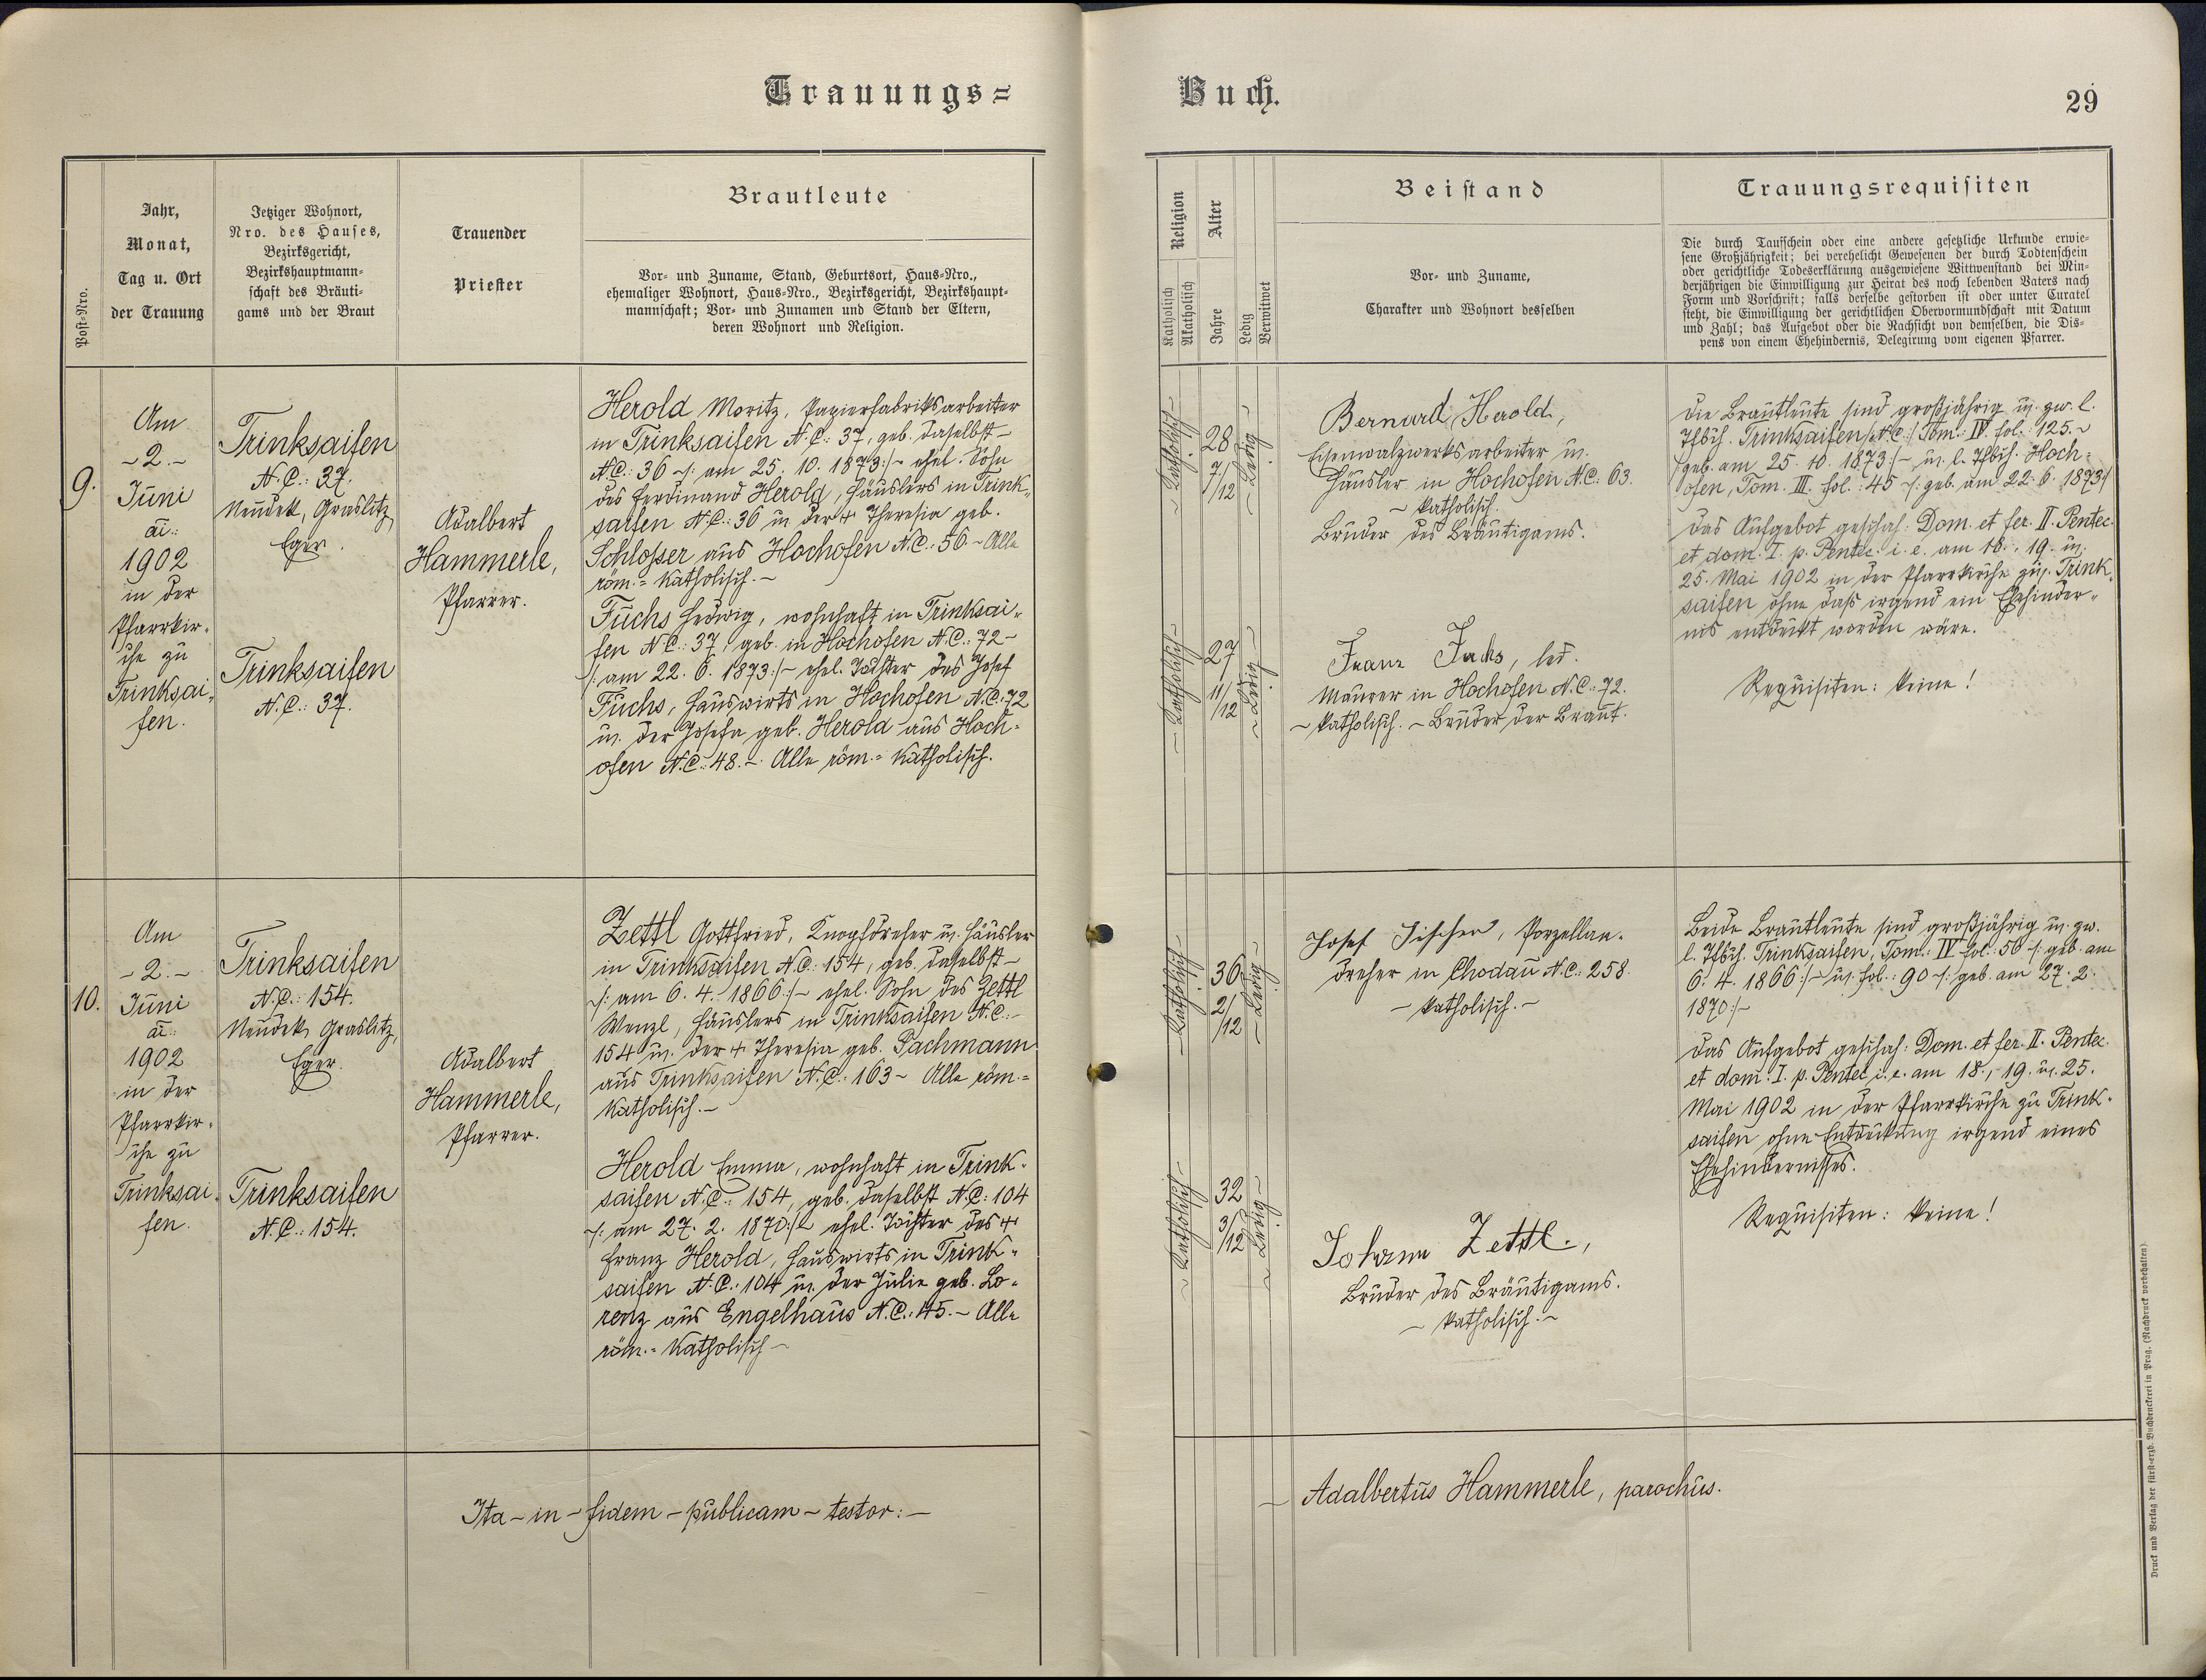 Trauungs=
Buch.
29
Post-Nro.
Jahr,
Monat,
Tag u. Ort
der Trauung
Jetziger Wohnort,
Nro. des Hauses,
Bezirksgericht,
Bezirkshauptmann=
schaft des Bräuti=
gams und der Braut
Trauender
Priester
Brautleute
Vor- und Zuname, Stand, Geburtsort, Haus-Nro.,
ehemaliger Wohnort, Haus-Nro., Bezirksgericht, Bezirkshaupt=
mannschaft; Vor- und Zunamen und Stand der Eltern,
deren Wohnort und Religion.
Religion
Katholisch
Akatholisch
Alter
Jahre
Ledig
Verwitwet
Beistand
Vor- und Zuname,
Charakter und Wohnort desselben
Trauungsrequisiten
Die durch Taufschein oder eine andere gesetzliche Urkunde erwie=
sene Großjährigkeit; bei verehelicht Gewesenen der durch Todtenschein
oder gerichtliche Todeserklärung ausgewiesene Wittwenstand bei Min=
derjährigen die Einwilligung zur Heirat des noch lebenden Vaters nach
Form und Vorschrift; falls derselbe gestorben ist oder unter Curatel
steht, die Einwilligung der gerichtlichen Obervormundschaft mit Datum
und Zahl; das Aufgebot oder die Nachsicht von demselben, die Dis=
pens von einem Ehehindernis, Delegirung vom eigenen Pfarrer.
9.
Am
- 2. -
Juni
ai:
1902
in der
Pfarrkir=
che zu
Trinksai=
fen.
Trinksaifen
N.C.: 37.
Neudek, Graslitz,
Eger.
Trinksaifen
N.C.: 37.
Adalbert
Hammerle,
Pfarrer.
Herold Moritz, Papierfabriksarbeiter
in Trinksaifen N.C.: 37, geb. daselbst -
N.C.: 36 -/: am 25. 10. 1873 :/- ehel. Sohn
des Ferdinand Herold, Häuslers in Trink=
saifen N.C.: 36 u. der + Theresia geb.
Schlosser aus Hochofen N.C.: 56 - Alle
röm.= katholisch. -
Fuchs Hedwig, wohnhaft in Trinksai=
fen N.C.: 37, geb. in Hochofen N.C.: 72 -
/: am 22. 6. 1873 :/- ehel. Tochter des Josef
Fuchs, Hauswirts in Hochofen N.C.: 72
u. der Josefa geb. Herold aus Hoch=
ofen N.C.: 48. - Alle röm.= katholisch.
- Katholisch -
28
7/12
- Ledig -
- Katholisch -
27
11/12
- Ledig -
Bernard Herold,
Eisenwalzwerksarbeiter u.
Häusler in Hochofen N.C.: 63.
- katholisch.
Bruder des Bräutigams.
Franz Fuchs, led.
Maurer in Hochofen N.C.: 72.
- katholisch. - Bruder der Braut.
Die Brautleute sind großjährig u. gw. l.
Tfbch. Trinksaifen /: N.C. :/ Tom.: IV. fol.: 125. -
/: geb. am 25. 10. 1873 :/- u. l. Tfbch. Hoch=
ofen, Tom. III. fol.: 45 -/: geb. am 22. 6. 1873 :/
Das Aufgebot geschah: Dom. et fer. II. Pentec.
et dom. I. p. Pentec. i. e. am 18., 19. u.
25. Mai 1902 in der Pfarrkirche zu Trink=
saifen ohne daß irgend ein Ehehinder=
nis entdeckt worden wäre.
Requisiten: keine!
10.
Am
- 2. -
Juni
ai:
1902
in der
Pfarrkir=
che zu
Trinksai=
fen.
Trinksaifen
N.C.: 154.
Neudek, Graslitz,
Eger.
Trinksaifen
N.C.: 154.
Adalbert
Hammerle,
Pfarrer.
Zettl Gottfried, Knopfdreher u. Häusler
in Trinksaifen N.C.: 154, geb. daselbst -
-/: am 6. 4. 1866 :/- ehel. Sohn des Zettl
Wenzl, Häuslers in Trinksaifen N.C.:
154 u. der + Theresia geb. Pachmann
aus Trinksaifen N.C.: 163 - Alle röm.=
katholisch. -
Herold Emma, wohnhaft in Trink=
saifen N.C.: 154, geb. daselbst N.C.: 104
-/: am 27. 2. 1870 :/- ehel. Tochter des +
Franz Herold, Hauswirts in Trink=
saifen N.C.: 104 u. der Julie geb. Lo=
renz aus Engelhaus N.C.: 45. - Alle
röm.= katholisch -
- Katholisch -
36
2/12
- Ledig -
- Katholisch -
32
3/12
- Ledig -
Josef Fischer, Porzellan=
dreher in Chodau N.C.: 258.
- katholisch. -
Johann Zettl.,
Bruder des Bräutigams.
- katholisch. -
Beide Brautleute sind großjährig u. gw.
l. Tfbch. Trinksaifen, Tom.: IV fol.: 50 -/: geb. am
6. 4. 1866 :/- u. fol.: 90 -/: geb. am 27. 2.
1870 :/-
Das Aufgebot geschah: Dom. et fer. II. Pentec.
et dom. I. p. Pentec. i. e. am 18., 19. u. 25.
Mai 1902 in der Pfarrkirche zu Trink=
saifen ohne Entdeckung irgend eines
Ehehindernisses.
Requisiten: keine!
Ita - in - fidem - publicam - testor: -
- Adalbertus Hammerle, parochus.
Druck und Verlag der fürst-erzb. Buchdruckerei in Prag. (Nachdruck vorbehalten).